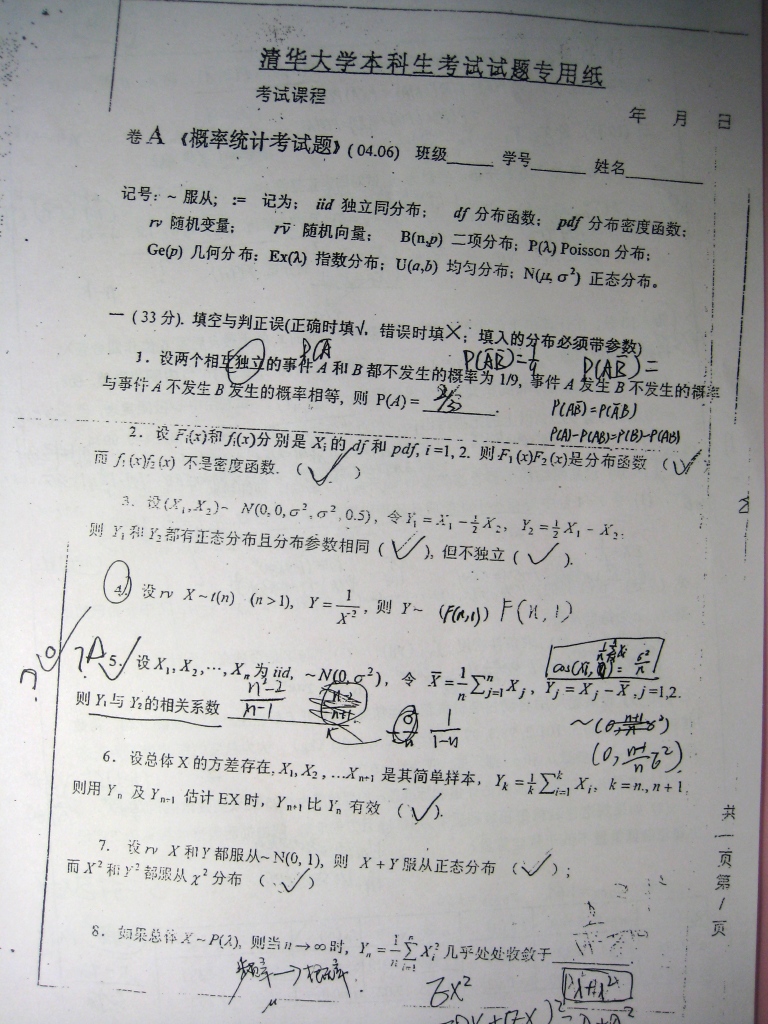 清华大学本科生考试试题专用纸
考试课程
年 月 日
卷 A 《概率统计考试题》( 04.06) 班级_____ 学号______ 姓名________
记号: ~ 服从; := 记为; iid 独立同分布; df 分布函数; pdf 分布密度函数;
rv 随机变量; rv̄ 随机向量; B(n,p) 二项分布; P(λ) Poisson 分布;
Ge(p) 几何分布; Ex(λ) 指数分布; U(a,b) 均匀分布; N(μ, σ²) 正态分布。
一 ( 33 分). 填空与判正误(正确时填√, 错误时填×; 填入的分布必须带参数)
P(A̅ P(A̅B̅)=1/9 P(AB̅)=
1. 设两个相互独立的事件 A 和 B 都不发生的概率为 1/9, 事件 A 发生 B 不发生的概率
与事件 A 不发生 B 发生的概率相等, 则 P(A) = 2/3.
P(AB̅)=P(A̅B)
P(A)-P(AB)=P(B)-P(AB)
2. 设 Fᵢ(x)和 fᵢ(x)分别是 Xᵢ 的 df 和 pdf, i=1, 2. 则 F₁(x)F₂(x)是分布函数 (√)
而 f₁(x)f₂(x) 不是密度函数. (√)
3. 设(X₁,X₂)~ N(0,0,σ²,σ²,0.5), 令 Y₁ = X₁ − ½X₂, Y₂ = ½X₁ − X₂.
则 Y₁ 和 Y₂ 都有正态分布且分布参数相同 (√), 但不独立 (√).
4. 设 rv X ~ t(n) (n > 1), Y = 1/X², 则 Y ~ (F(n,1)) F(n,1)
5. 设 X₁, X₂, ⋯, Xₙ 为 iid, ~ N(0, σ²), 令 X̅ = 1/n ∑ⁿⱼ₌₁ Xⱼ, Yⱼ = Xⱼ − X̅, j=1,2.
则 Y₁与 Y₂的相关系数 1/(1-n)
(0, (n-1)/n σ²)
6. 设总体 X 的方差存在, X₁, X₂, …Xₙ₊₁ 是其简单样本, Yₖ = 1/k ∑ᵏᵢ₌₁ Xᵢ, k = n, n + 1,
则用 Yₙ 及 Yₙ₊₁ 估计 EX 时, Yₙ₊₁ 比 Yₙ 有效 (√).
7. 设 rv X 和 Y 都服从~ N(0, 1), 则 X + Y 服从正态分布 (√);
而 X² 和 Y² 都服从 χ² 分布 (√)
8. 如果总体 X ~ P(λ), 则当 n → ∞ 时, Yₙ = 1/n ∑ⁿᵢ₌₁ Xᵢ² 几乎处处收敛于
频率→概率.
EX²
λ+λ²
共 1 页 第 1 页